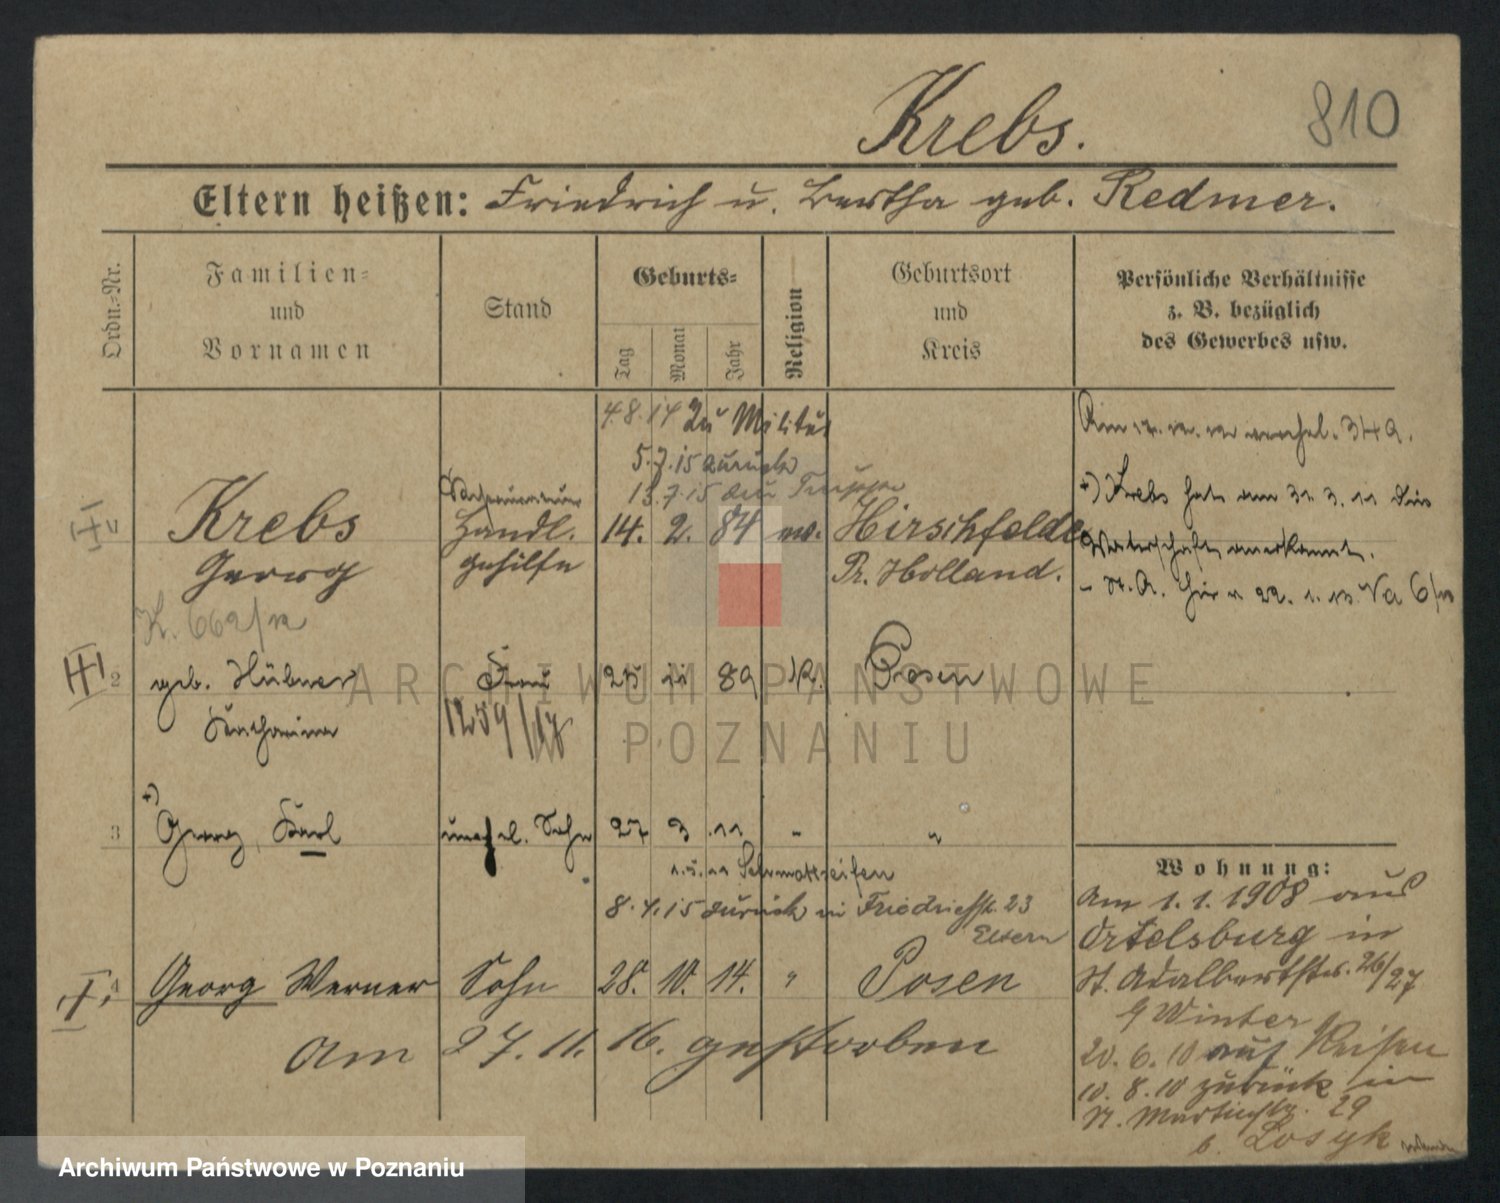 810
Krebs.
Eltern heißen: Friedrich u. Bertha geb. Redmer.
Ordn.-Nr.
Familien- und Vornamen
Stand
Geburts-
Tag
Monat
Jahr
Religion
Geburtsort und Kreis
Persönliche Verhältnisse z. B. bezüglich des Gewerbes usw.
4.8.14 Zu Militär
5.7.15 zurück
13.7.15 zur Truppe
Krebs Georg
Handl. gehilfe
14. 2. 84 ev. Hirschfelde Pr. Holland.
+) Krebs hat am 31. 3. 11 die Vaterschaft anerkannt.
K. 669/12
2 geb. Hübner Katharina
Frau
1259/17
25 11 89 K. Posen
3 +) Georg, Karl unehel. Sohn 27 3 11 " "
1.5.11 Sehrmattreifen
8.4.15 zurück in Friedrichstr. 23
Eltern
4 Georg Werner Sohn 28. 10. 14. " Posen
Am 27. 11. 16. gestorben
Wohnung:
Am 1. 1. 1908 aus
Ortelsburg in
St. Adalbertstr. 26/27
b Winter
20. 6. 10 auf Reisen
10. 8. 10 zurück in
St. Martinstr. 29
b. Losyk
ARCHIWUM PAŃSTWOWE
W POZNANIU
Archiwum Państwowe w Poznaniu